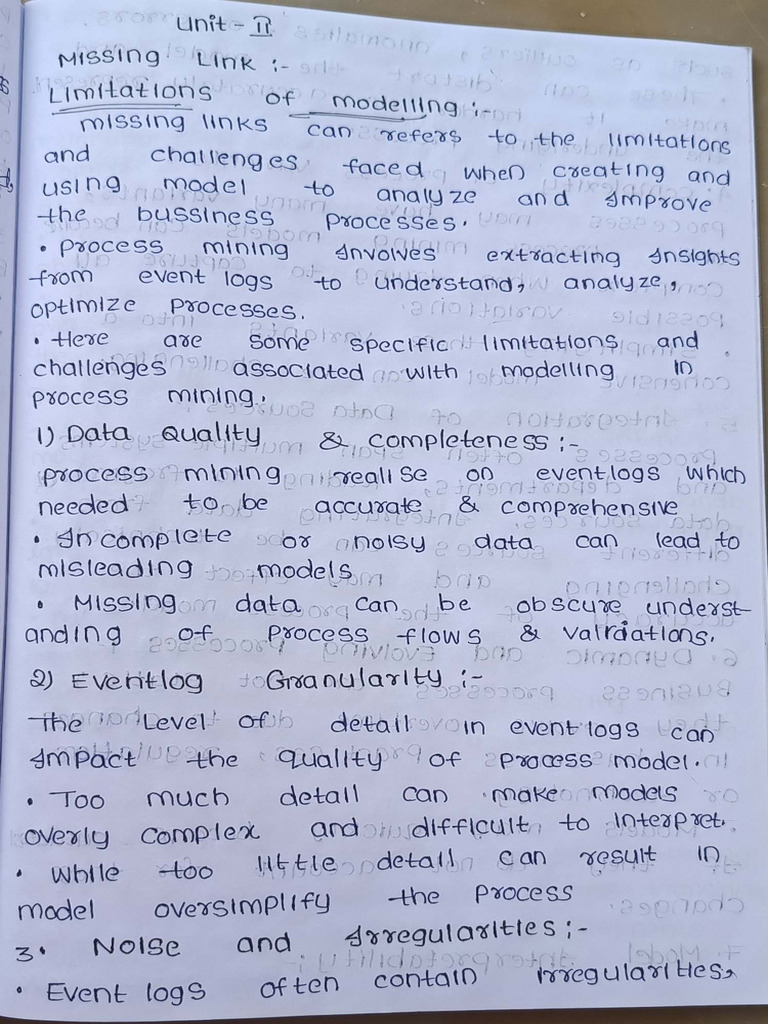 Unit - II
Missing Link :-
Limitations of modelling :-
missing links can refers to the limitations
and challenges faced when creating and
using model to analyze and Improve
the bussiness processes.
• Process mining Involves extracting Insights
from event logs to understand, analyze,
optimize processes.
• Here are some specific limitations and
challenges associated with modelling in
process mining.
1) Data Quality & completeness :-
process mining realise on eventlogs which
needed to be accurate & comprehensive
• Incomplete or noisy data can lead to
misleading models
• Missing data can be obscure underst
anding of process flows & variations.
2) Eventlog Granularity :-
The Level of detail in event logs can
Impact the quality of process model.
• Too much detail can make models
overly complex and difficult to interpret.
• While too little detail can result in
model oversimplify the process
3. Noise and Irregularities :-
• Event logs often contain irregularities,